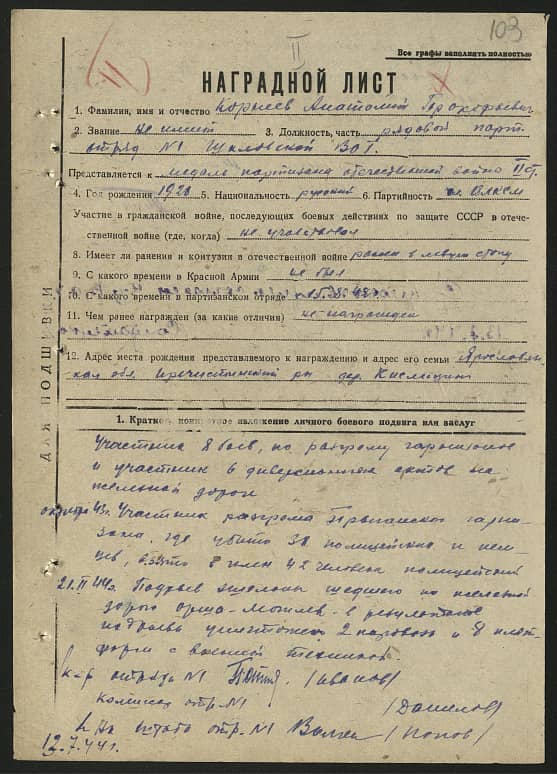 103
II
Все графы заполнять полностью
НАГРАДНОЙ ЛИСТ
1. Фамилия, имя и отчество Корнеев Анатолий Прохорьевич
2. Звание не имеет 3. Должность, часть рядовой парт.
отряд №1 Шкловской ВОГ.
Представляется к медаль партизана отечественной войны II ст.
4. Год рождения 1920 5. Национальность русский 6. Партийность чл. ВЛКСМ
Участие в гражданской войне, последующих боевых действиях по защите СССР в отече-
ственной войне (где, когда) не участвовал
8. Имеет ли ранения и контузии в отечественной войне ранен в левую стопу
9. С какого времени в Красной Армии не был
10. С какого времени в партизанском отряде с 15.8.43
11. Чем ранее награжден (за какие отличия) не награжден
12. Адрес места рождения представляемого к награждению и адрес его семьи Ярославь-
кая обл. Пречистенский р-н дер.
ДЛЯ ПОДШИВКИ
1. Краткое, конкретное изложение личного боевого подвига или заслуг
Участник 8 боев, по разгрому гарнизонов
и участник в диверсионных актов на
железной дороги
октябрь 43г. Участник разгрома гарни-
зона, где убито 30 полицейских и нем-
цев, взято в плен 42 человека полицейских
21.II 44г. Подрыв эшелона шедшего по железной
дороге Орша-Могилев в результате
подрыва уничтожено 2 паровоза и 8 плат-
форм с военной техникой.
к-р отряда №1 (Иванов)
Комиссар отр. №1 (Данилов)
штаба отр. №1 (Попов)
12.7.44г.